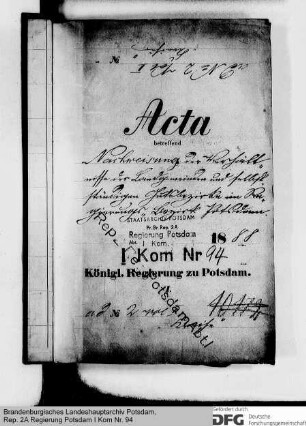 Acta
betreffend
Nachweisung der Verhält-
nisse der Landgemeinden und selbst
ständigen Gutsbezirke im Re-
gierungs Bezirk Potsdam.
STAATSARCHIV POTSDAM
Pr. Br. Rep. 2 A
Regierung Potsdam
I Kom.
1888
I Kom Nr 94
Königl. Regierung zu Potsdam.
Brandenburgisches Landeshauptarchiv Potsdam,
Rep. 2A Regierung Potsdam I Kom Nr. 94
Gefördert durch
DFG Deutsche
Forschungsgemeinschaft